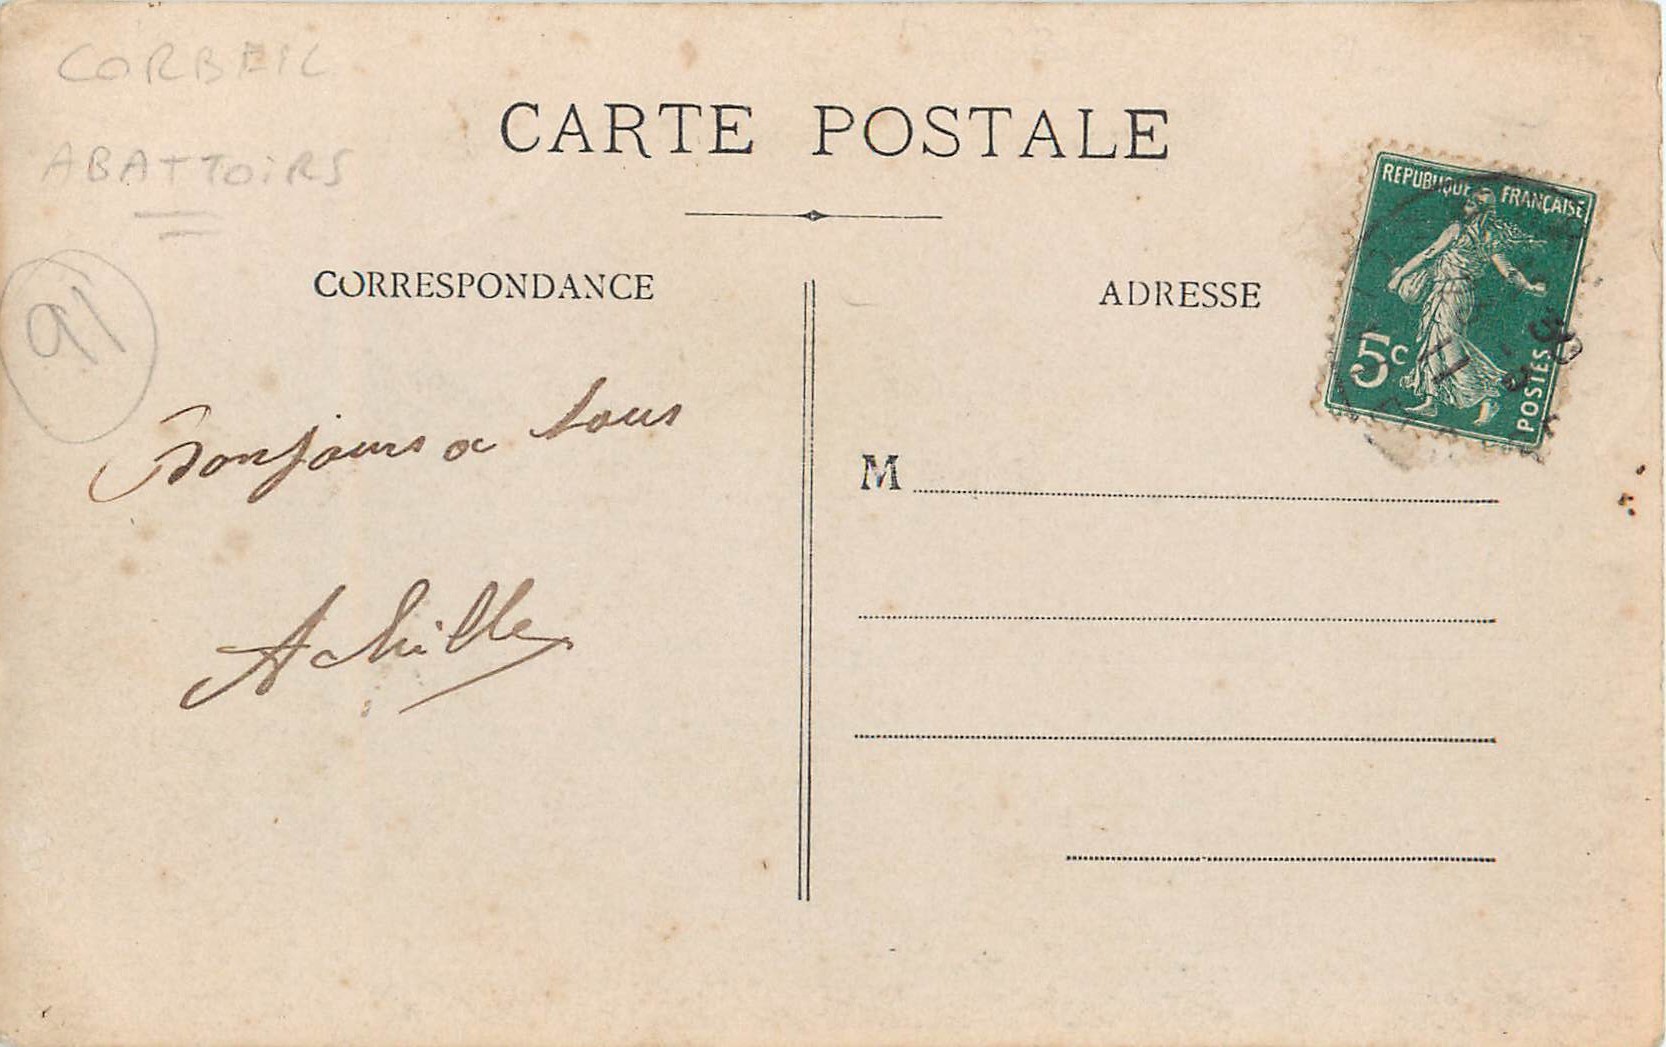 CORBEIL
ABATTOIRS
91
CARTE POSTALE
CORRESPONDANCE
ADRESSE
REPUBLIQUE FRANÇAISE
5c
POSTES
Bonjours a tous
Achille
M